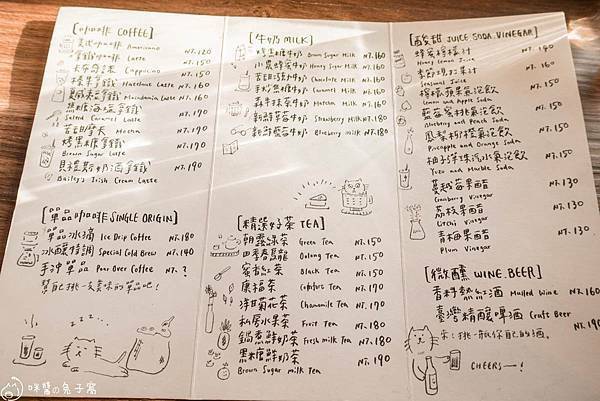 [咖啡 COFFEE]
美式咖啡 Americano NT.120
拿鐵咖啡 Latte NT.150
卡布奇諾 Cappuccino NT.150
榛果拿鐵 Hazelnut Latte NT.160
夏威夷豆拿鐵 Macadamia Latte NT.160
焦糖海鹽拿鐵
Salted Caramel Latte NT.190
苦甜摩卡 Mocha NT.190
烤黑糖拿鐵
Brown Sugar Latte NT.170
貝禮斯奶酒拿鐵 NT.190
Bailey's Irish Cream Latte
[單品咖啡 SINGLE ORIGIN]
單品冰滴 Ice Drip Coffee NT.180
冰釀特調 Special Cold Brew NT.140
手沖單品 Pour Over Coffee NT.?
幫自己挑一支美味的單品吧!
zzz..
[牛奶 MILK]
烤黑糖牛奶 Brown Sugar Milk NT.160
小農蜂蜜牛奶 Honey Milk NT.160
苦甜漢牛奶 Chocolate Milk NT.160
手炒焦糖牛奶 Caramel Milk NT.160
森半抹茶牛奶 Matcha Milk NT.160
新鮮草莓牛奶 Strawberry Milk NT.180
新鮮藍莓牛奶 Blueberry milk NT.180
[精築好茶 TEA]
朝露綠茶 Green Tea NT.150
四季春烏龍 Oolong Tea NT.150
蜜香紅茶 Black Tea NT.150
康福茶 Comfort Tea NT.170
洋甘菊花茶 Chamomile Tea NT.170
私房水果茶 Fruit Tea NT.180
鍋煮鮮奶茶 Fresh milk Tea NT.180
黑糖鮮奶茶 NT.190
Brown Sugar milk Tea
[酸甜 JUICE SODA VINEGAR]
蜂蜜檸檬汁 NT.140
Honey Lemon Juice
季節現打果汁 NT.160
Seasonal Juice
檸檬蘋果氣泡飲 NT.150
Lemon and Apple Soda
藍莓蜜桃氣泡飲 NT.150
Blueberry and Peach Soda
鳳梨柳橙氣泡飲 NT.150
Pineapple and Orange Soda
柚子洋味汽水氣泡飲 NT.150
Yuzu and Marble Soda
蔓越莓果醋 NT.130
Cranberry Vinegar
荔枝果醋 NT.130
Litchi Vinegar
青梅果醋 NT.130
Plum Vinegar
[微醺 WINE.BEER]
香料熱紅酒 Mulled Wine NT.160
臺灣精釀啤酒 Craft Beer NT.190
來,挑一瓶你自己的酒。
CHEERS—!
咪醬の兔子窩